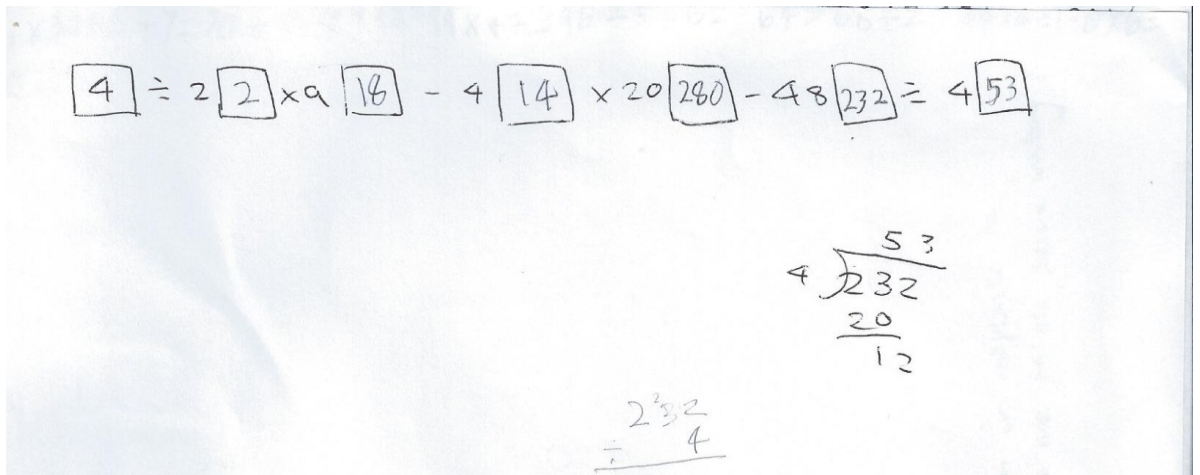 4 ÷ 2 2 × 9 18 - 4 14 × 20 280 - 48 232 ÷ 4 53
53
4 232
20
12
232
÷ 4